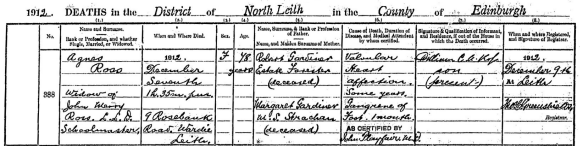 1912. DEATHS in the District of North Leith in the County of Edinburgh
(1.) (2.) (3.) (4.) (5.) (6.) (7.) (8.)
No. Name and Surname. When and Where Died. Sex. Age. Name, Surname, & Rank or Profession of Father. Cause of Death, Duration of Disease, and Medical Attendant by whom certified. Signature & Qualification of Informant, and Residence, if out of the House in which the Death occurred. When and where Registered, and Signature of Registrar.
Rank or Profession, and whether Single, Married, or Widowed. Name, and Maiden Surname of Mother.
388
Agnes
Ross
Widow of
John
Ross. L.L.D
Schoolmaster
1912.
December
Seventh
1h. 35m. p.m.
9 Rosebank
Road, Wardie
Leith.
F
78
years
Robert Gardiner
Estate Forester
(deceased)
Margaret Gardiner
M.S. Strachan
(deceased)
Valvular
Heart
Affection
Some years.
Gangrene of
Foot 1 month
AS CERTIFIED BY
John Playfair M.D.
William C. A. Ross
son
(present)
1912.
December 9th
At Leith
Registrar.